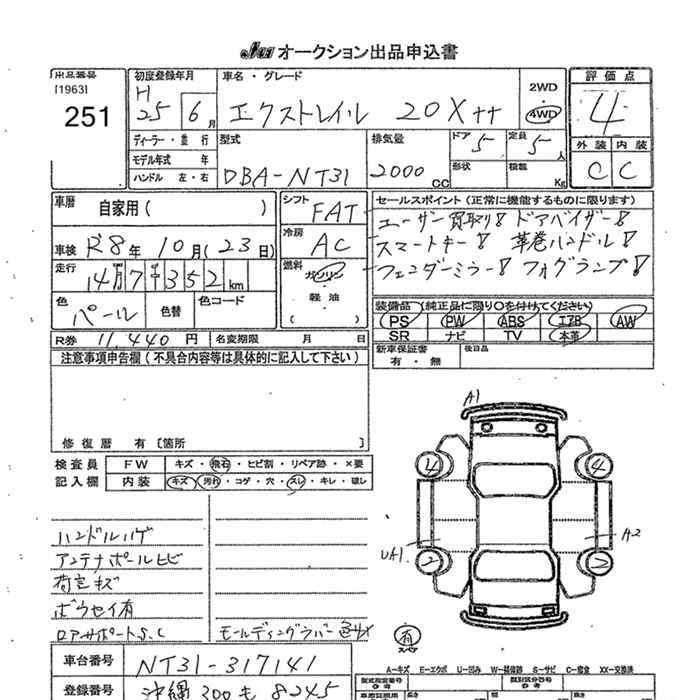 JAA オークション出品申込書
出品番号
[1963]
251
初度登録年月
H 25 6月
ディーラー・並行
モデル年式 年
ハンドル 左・右
車名・グレード
エクストレイル 20X tt
2WD
4WD
型式
DBA-NT31
排気量
2000cc
ドア 5
定員 5人
形状
積載 Kg
評価点
4
外装 内装
C C
車歴
自家用( )
車検 R8年 10月(23日)
走行
14万7千352km
色
パール
色替
色コード
シフト
FAT
冷房
AC
燃料
ガソリン
軽油
( )
セールスポイント(正常に機能するものに限ります)
ユーザー買取り! ドアバイザー!
スマートキー! 革巻ハンドル!
フェンダーミラー! フォグランプ!
装備品(純正品に限り○を付けてください)
PS PW ABS エアB AW
SR ナビ TV 本革
新車保証書
有・無
後日品
R券 11,440円
名変期限 月 日
注意事項申告欄(不具合内容等は具体的に記入して下さい)
修復歴 有〔箇所 〕
検査員 FW キズ・飛石・ヒビ割・リペア跡・×要
記入欄 内装 キズ・汚れ・コゲ・穴・スレ・キレ・破レ
ハンドルハゲ
アンテナポールヒビ
荷室キズ
ボウセイ有
ロアサポートS.C
モールディングラバー色サメ
A1
4 4
UA1
A2
2 2
有
スペア
A-キズ E-エクボ U-凹み W-補修跡 S-サビ C-腐食 XX-交換済
車台番号 NT31-317141
登録番号 沖縄 300 も 8245